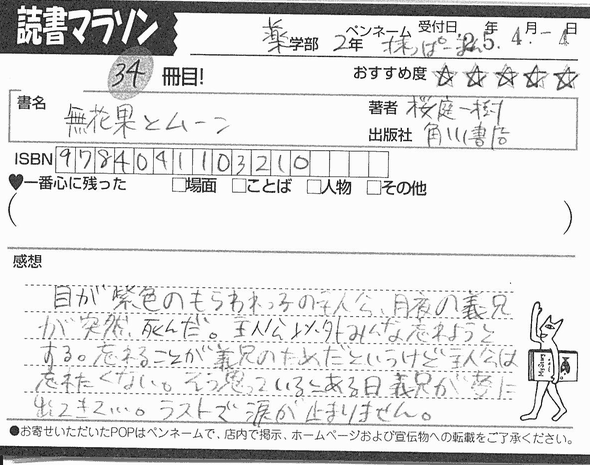 読書マラソン
薬学部 2年 ペンネーム 受付日 '25年 4月 -4日
34冊目! おすすめ度 ☆☆☆☆☆
書名 無花果とムーン 著者 桜庭一樹
出版社 角川書店
ISBN 9784041103210
♥一番心に残った □場面 □ことば □人物 □その他
( )
感想
目が紫色のもらわれっ子の主人公、月夜の義兄
が突然、死んだ。主人公以外みんな忘れようと
する。忘れることが義兄のためだというけど主人公は
忘れたくない。そう思っているとある日義兄が夢に
出てきて…。ラストで涙が止まりません。
●お寄せいただいたPOPはペンネームで、店内で掲示、ホームページおよび宣伝物への転載をご了承ください。